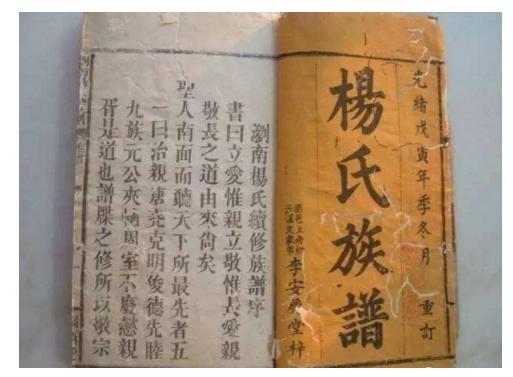 光緒戊寅年季冬月 重訂
楊氏族譜
李安 堂梓
瀏南楊氏續修族譜序
書曰立愛惟親立敬惟長愛親
敬長之道由來尚矣
聖人南面而聽天下所最先者五
一曰治親唐堯克明俊德先睦
九族元公夾輔周室不廢懿親
胥是道也譜牒之修所以敬宗